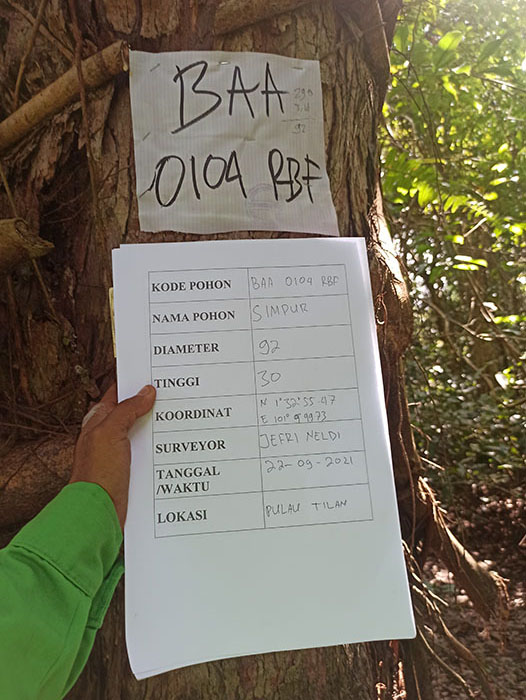 BAA
92
0104 RBF
KODE POHON BAA 0104 RBF
NAMA POHON SIMPUR
DIAMETER 92
TINGGI 30
KOORDINAT N 1°32'55.47
E 101°
SURVEYOR JEFRI NELDI
TANGGAL 22-09-2021
/WAKTU
LOKASI PULAU TILAN